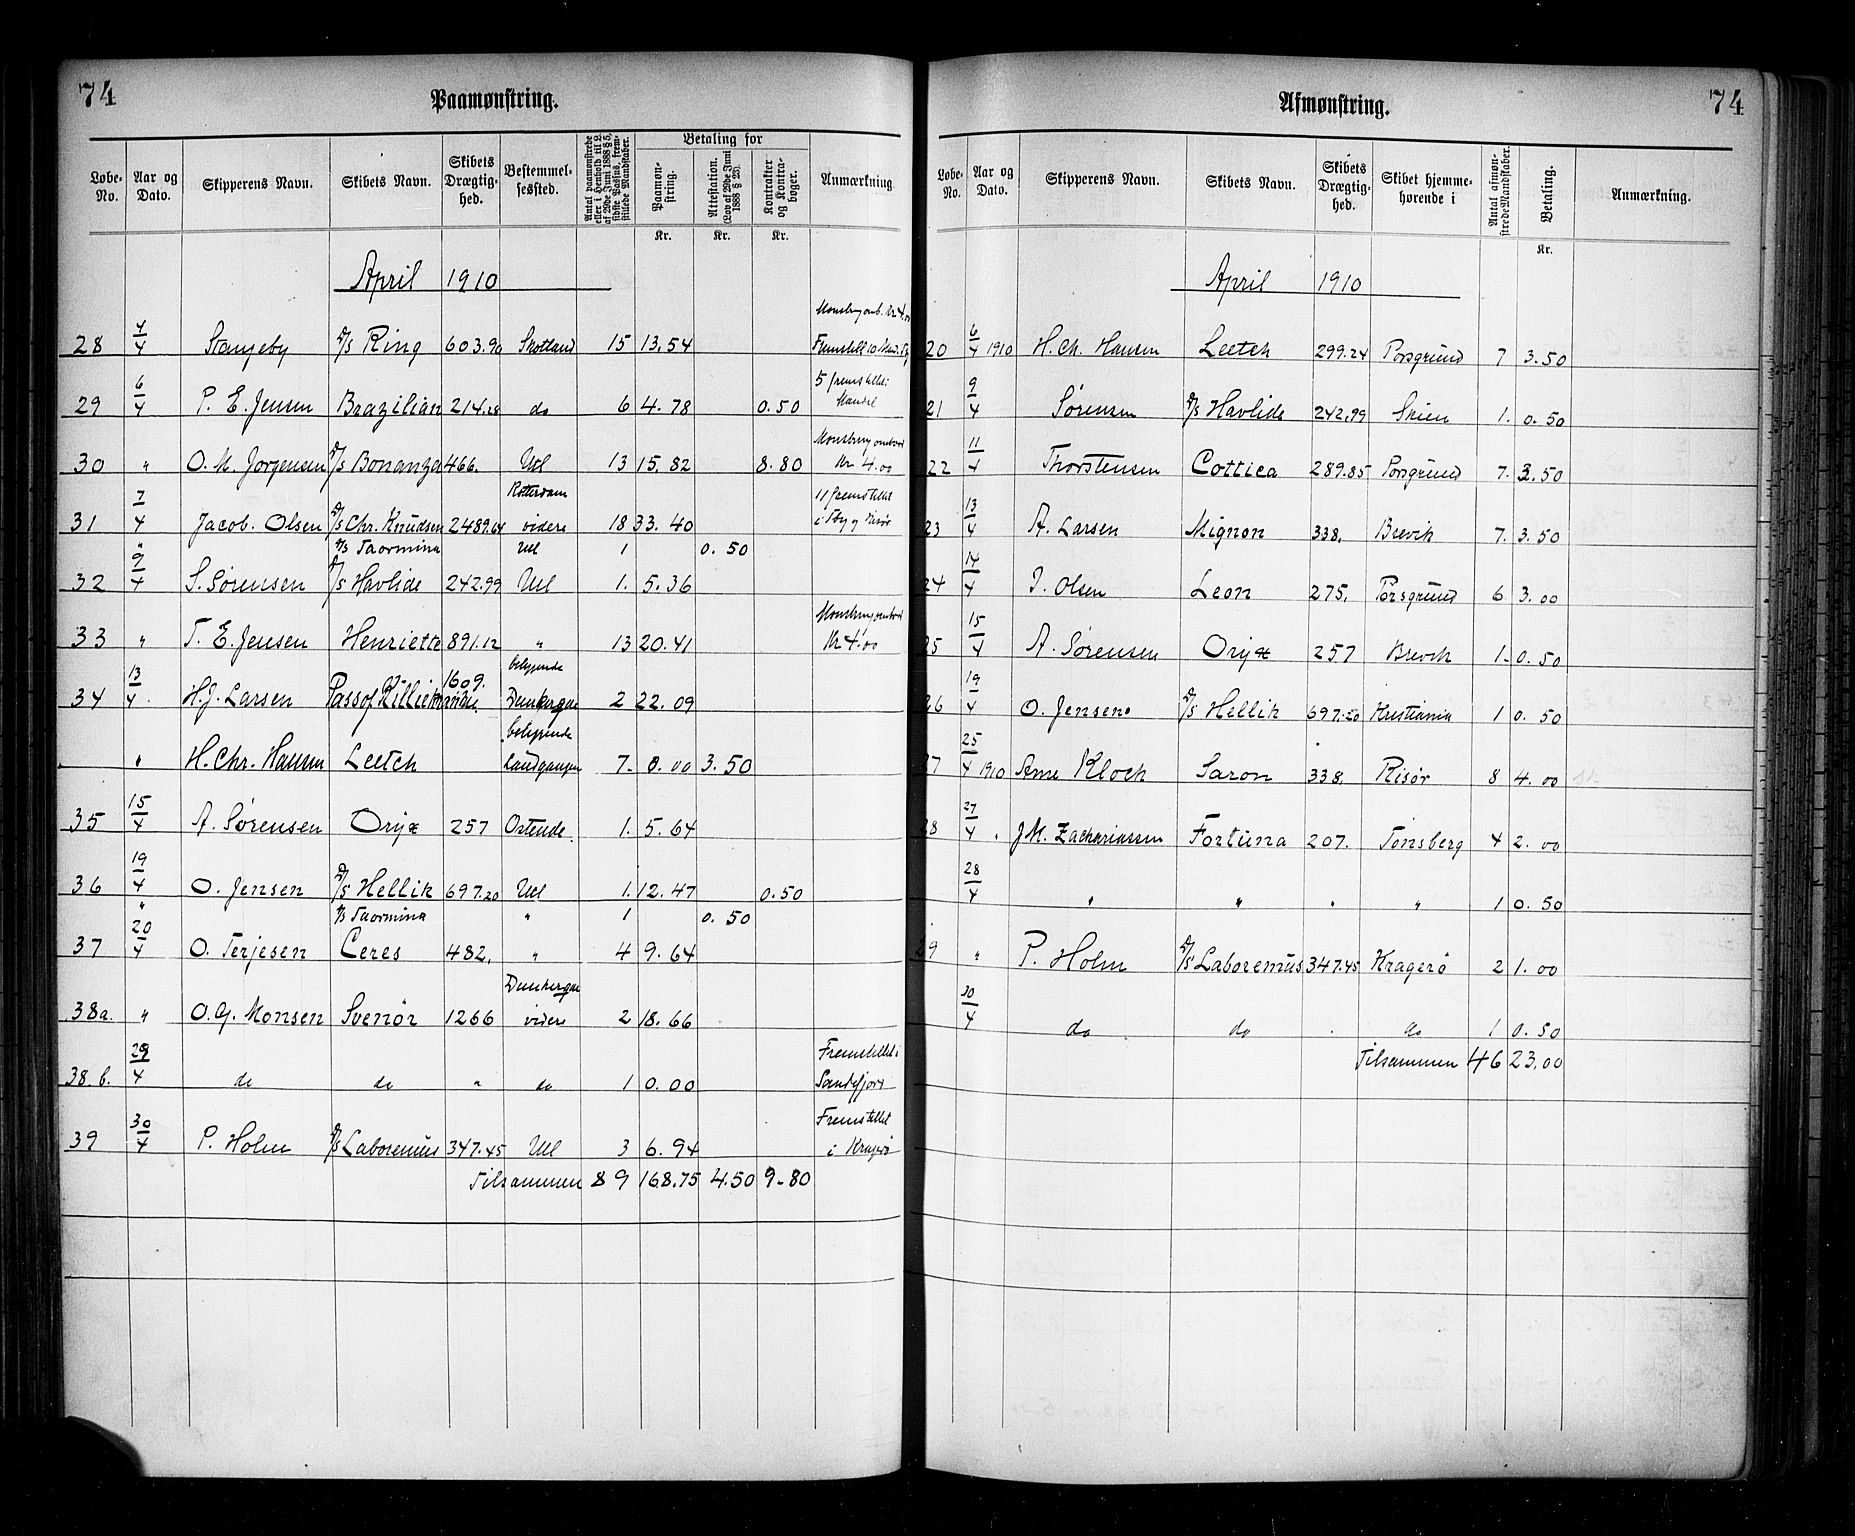 74
Paamønstring.
Løbe-No. | Aar og Dato. | Skipperens Navn. | Skibets Navn. | Skibets Drægtighed. | Bestemmelsessted. | Antal paamønstrede eller i Henhold til L. af 29de Juni 1888 § 5, sidste Passus, fremstillede Mandskaber. | Betaling for Paamønstring. Kr. | Attestation. (Lov af 29de Juni 1888 § 23). Kr. | Kontrakter og Kontrabøger. Kr. | Anmærkning
April 1910
28 | 4/4 | Stangeby | D/S Ring | 603.90 | Skotland | 15 | 13.54 | Mønstring omb. Kr 4.00 Fremstill. 10 Mand.
29 | 6/4 | P. E. Jensen | Brazilian | 214.28 | do | 6 | 4.78 | 0.50 | 5 fremstillet i Mandal
30 | " | O. M. Jørgensen | D/S Bonanza | 466. | Udl | 13 | 15.82 | 8.80 | Mønstring ombord Kr 4.00
31 | 7/4 | Jacob. Olsen | D/S Chr. Knudsen | 2489.64 | Rotterdam videre | 18 | 33.40 | 11 fremstillet i Tbg og Risør
" | D/S Taormina | Udl | 1 | 0.50
32 | 9/4 | S. Sørensen | D/S Havlide | 242.99 | Udl | 1. | 5.36
33 | " | T. E. Jensen | Henriette | 891.12 | " | 13 | 20.41 | Mønstring ombord Kr 4.00
34 | 13/4 | H. J. Larsen | Pass of Killiekrankie. | 1609. | beliggende Dunkerque | 2 | 22.09
" | H. Chr. Hansen | Leetch | beliggende Landgangen | 7. | 0.00 | 3.50
35 | 15/4 | A. Sørensen | Oryx | 257 | Ostende. | 1. | 5.64
36 | 19/4 | O. Jensen | D/S Hellik | 697.20 | Udl | 1. | 12.47 | 0.50
" | D/S Taormina | " | 1 | 0.50
37 | 20/4 | O. Terjesen | Ceres | 482. | " | 4 | 9.64
38a. | " | O. G. Monsen | Svenør | 1266 | Dunkerque videre | 2 | 18.66
38.b. | 29/4 | do | do | " | do | 1 | 0.00 | Fremstillet i Sandefjord
39 | 30/4 | P. Holm | D/S Laboremus | 347.45 | Udl | 3 | 6.94 | Fremstillet i Kragerø
Tilsammen 89 | 168.75 | 4.50 | 9.80
Afmønstring.
74
Løbe-No. | Aar og Dato. | Skipperens Navn. | Skibets Navn. | Skibets Drægtighed. | Skibet hjemmehørende i | Antal afmønstrede Mandskaber. | Betaling. Kr. | Anmærkning.
April 1910
20 | 6/4 1910 | H. Ch. Hansen | Leetch | 299.24 | Porsgrund | 7 | 3.50
21 | 9/4 | Sørensen | D/S Havlide | 242.99 | Skien | 1. | 0.50
22 | 11/4 | Thorstensen | Cottica | 289.85 | Porsgrund | 7. | 3.50
23 | 13/4 | A. Larsen | Mignon | 338. | Brevik | 7. | 3.50
24 | 14/4 | J. Olsen | Leon | 275. | Porsgrund | 6 | 3.00
25 | 15/4 | A. Sørensen | Oryx | 257 | Brevik | 1. | 0.50
26 | 19/4 | O. Jensen. | D/S Hellik | 697.20 | Kristiania | 1 | 0.50
27 | 25/4 1910 | Arne Kloch | Saron | 338. | Risør | 8 | 4.00
28 | 27/4 | J M. Zachariassen | Fortuna | 207. | Tønsberg | 4 | 2.00
28/4 | " | " | " | " | 1 | 0.50
29 | " | P. Holm | D/S Laboremus | 347.45 | Kragerø | 2 | 1.00
30/4 | do | do | . | do | 1 | 0.50
Tilsammen 46 | 23.00